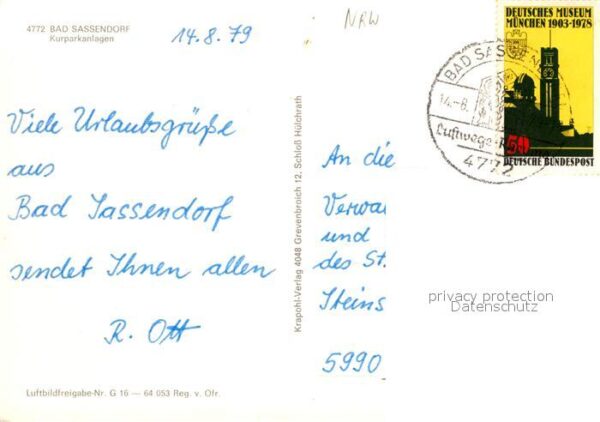 4772 BAD SASSENDORF
Kurparkanlagen
14.8.79
NRW
Viele Urlaubsgrüße
aus
Bad Sassendorf
sendet Ihnen allen
R. Ott
Luftbildfreigabe-Nr. G 16 — 64 053 Reg. v. Ofr.
Krapohl-Verlag 4048 Grevenbroich 12, Schloß Hülchrath
DEUTSCHES MUSEUM
MÜNCHEN 1903-1978
50
DEUTSCHE BUNDESPOST
BAD SASSEN
14.-8.
Luftwege
4772
An die
Verwa
und
des St.
Steins
5990
privacy protection
Datenschutz